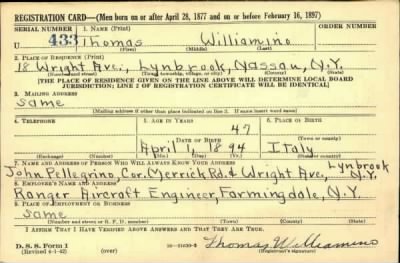 REGISTRATION CARD—(Men born on or after April 28, 1877 and on or before February 16, 1897)
SERIAL NUMBER 1. NAME (Print) ORDER NUMBER
U 433 Thomas Williamino
(First) (Middle) (Last)
2. PLACE OF RESIDENCE (Print)
18 Wright Ave., Lynbrook, Nassau, N.Y.
(Number and street) (Town, township, village, or city) (County) (State)
[THE PLACE OF RESIDENCE GIVEN ON THE LINE ABOVE WILL DETERMINE LOCAL BOARD
JURISDICTION; LINE 2 OF REGISTRATION CERTIFICATE WILL BE IDENTICAL]
3. MAILING ADDRESS
Same
(Mailing address if other than place indicated on line 2. If same insert word same)
4. TELEPHONE 5. AGE IN YEARS 6. PLACE OF BIRTH
47
DATE OF BIRTH (Town or county)
April 1, 1894 Italy
(Exchange) (Number) (Mo.) (Day) (Yr.) (State or country)
7. NAME AND ADDRESS OF PERSON WHO WILL ALWAYS KNOW YOUR ADDRESS
John Pellegrino, Cor. Merrick Rd. & Wright Ave, Lynbrook N.Y.
8. EMPLOYER'S NAME AND ADDRESS
Ranger Aircraft Engineer, Farmingdale, N.Y.
9. PLACE OF EMPLOYMENT OR BUSINESS
Same
(Number and street or R. F. D. number) (Town) (County) (State)
I AFFIRM THAT I HAVE VERIFIED ABOVE ANSWERS AND THAT THEY ARE TRUE.
D. S. S. Form 1
(Revised 4-1-42) (over) Thomas Williamino
(Registrant's signature)